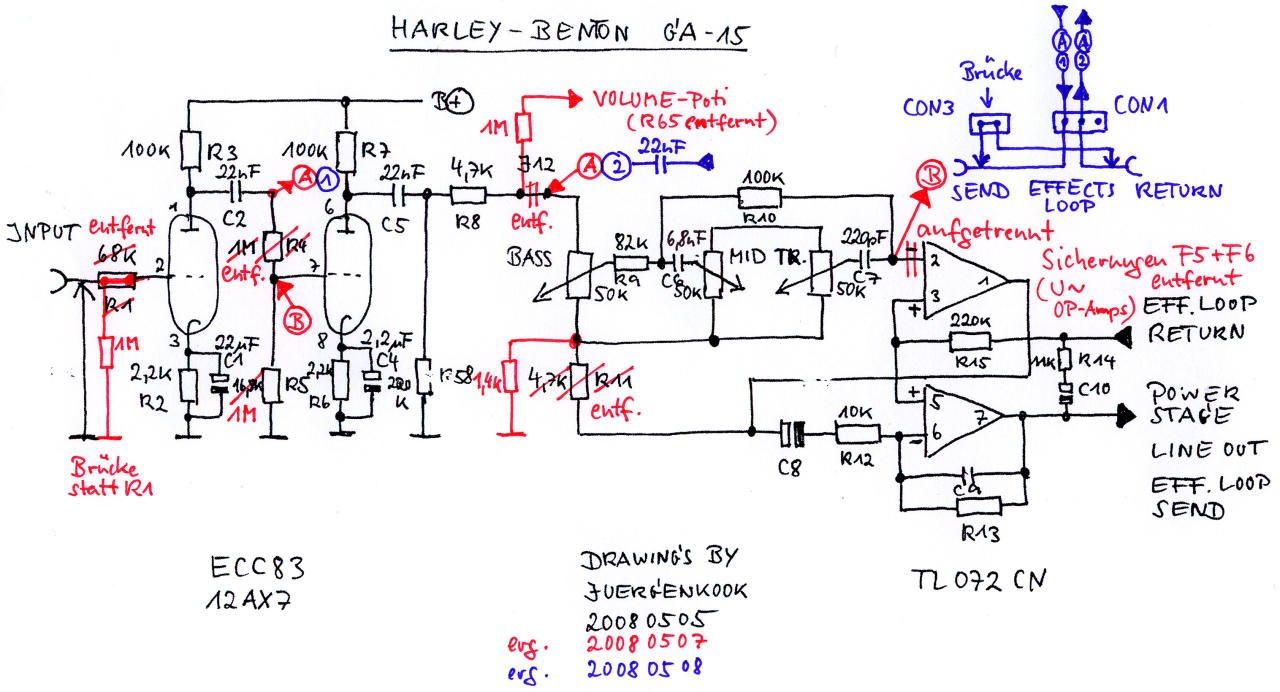 HARLEY-BENTON GA-15
Brücke
CON3
CON1
A
1
A
2
SEND EFFECTS RETURN
LOOP
B+
1M
VOLUME-Poti
(R65 entfernt)
100K
R3
100K
R7
22nF
C2
A 1
22nF
C5
4,7K
R8
J12
entf.
A 2
22nF
100K
R10
B
aufgetrennt
INPUT
entfernt
68K
R1
1
2
3
1M
R4
entf.
6
7
8
B
BASS
50K
82K
R9
6,8nF
C6
MID
50K
TR.
50K
220pF
C7
2
3
+
1
Sicherungen F5+F6
entfernt
(U~
OP-Amps)
EFF. LOOP
RETURN
220K
R15
1M
2,2K
R2
22µF
C1
16,8K
1M
R5
2,2K
R6
2,2µF
C4
220
K
R58
1,4K
4,7K
R11
entf.
11K
R14
C10
+
5
6
-
7
POWER
STAGE
LINE OUT
EFF. LOOP
SEND
C8
10K
R12
C9
R13
Brücke
statt R1
ECC83
12AX7
TL072CN
DRAWINGS BY
JUERGENKOOK
20080505
erg. 20080507
erg. 20080508